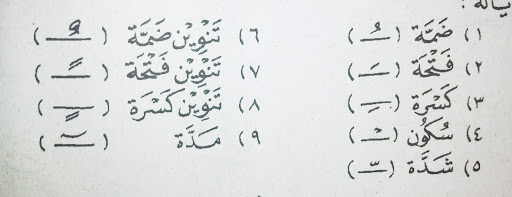 يأتة :
١) ضَمَّة (ـُـ)
٢) فَتْحَة (ـَـ)
٣) كَسْرَة (ـِـ)
٤) سُكُون (ـْـ)
٥) شَدَّة (ـّـ)
٦) تَنْوِيْن ضَمَّة (ـٌـ)
٧) تَنْوِيْن فَتْحَة (ـًـ)
٨) تَنْوِيْن كَسْرَة (ـٍـ)
٩) مَدَّة (ـٓـ)